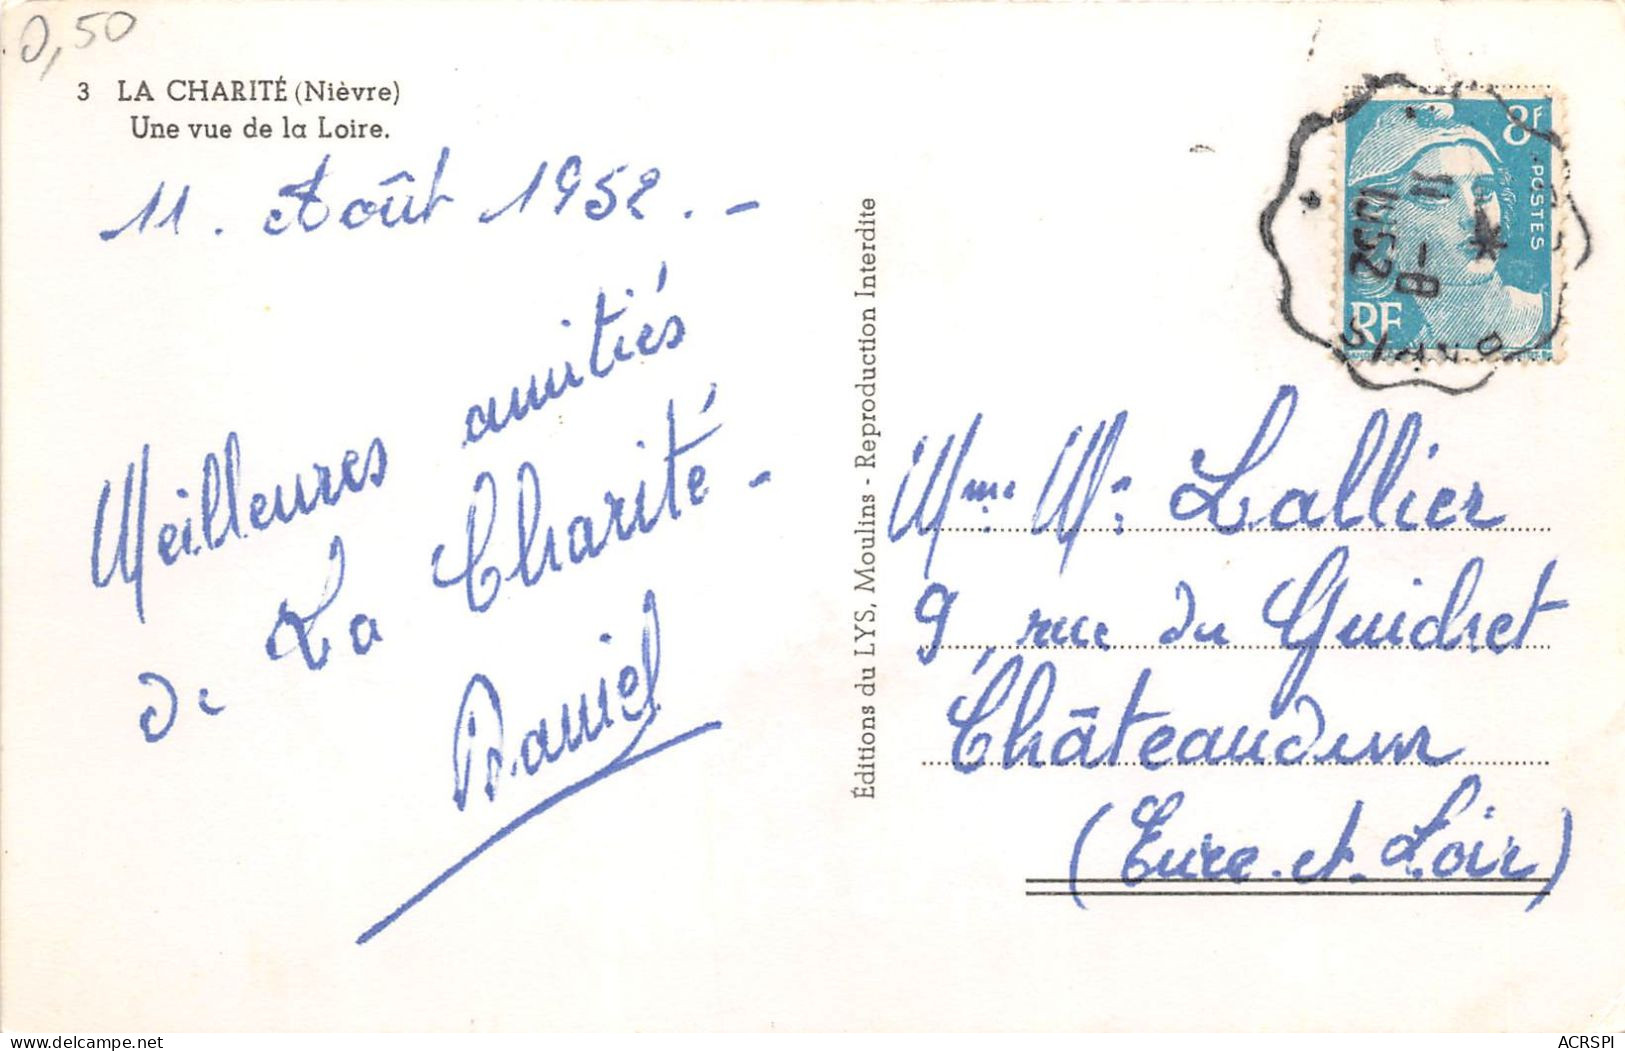 0,50
3 LA CHARITÉ (Nièvre)
Une vue de la Loire.
11. Août 1952. -
Meilleures amitiés
de La Charité -
Daniel
Éditions du LYS, Moulins - Reproduction Interdite
8F
POSTES
RF
11 -8
1952
PARIS
Mme Mr Lallier
9 rue du Guichet
Châteaudun
(Eure-et-Loir)
ACRSPI